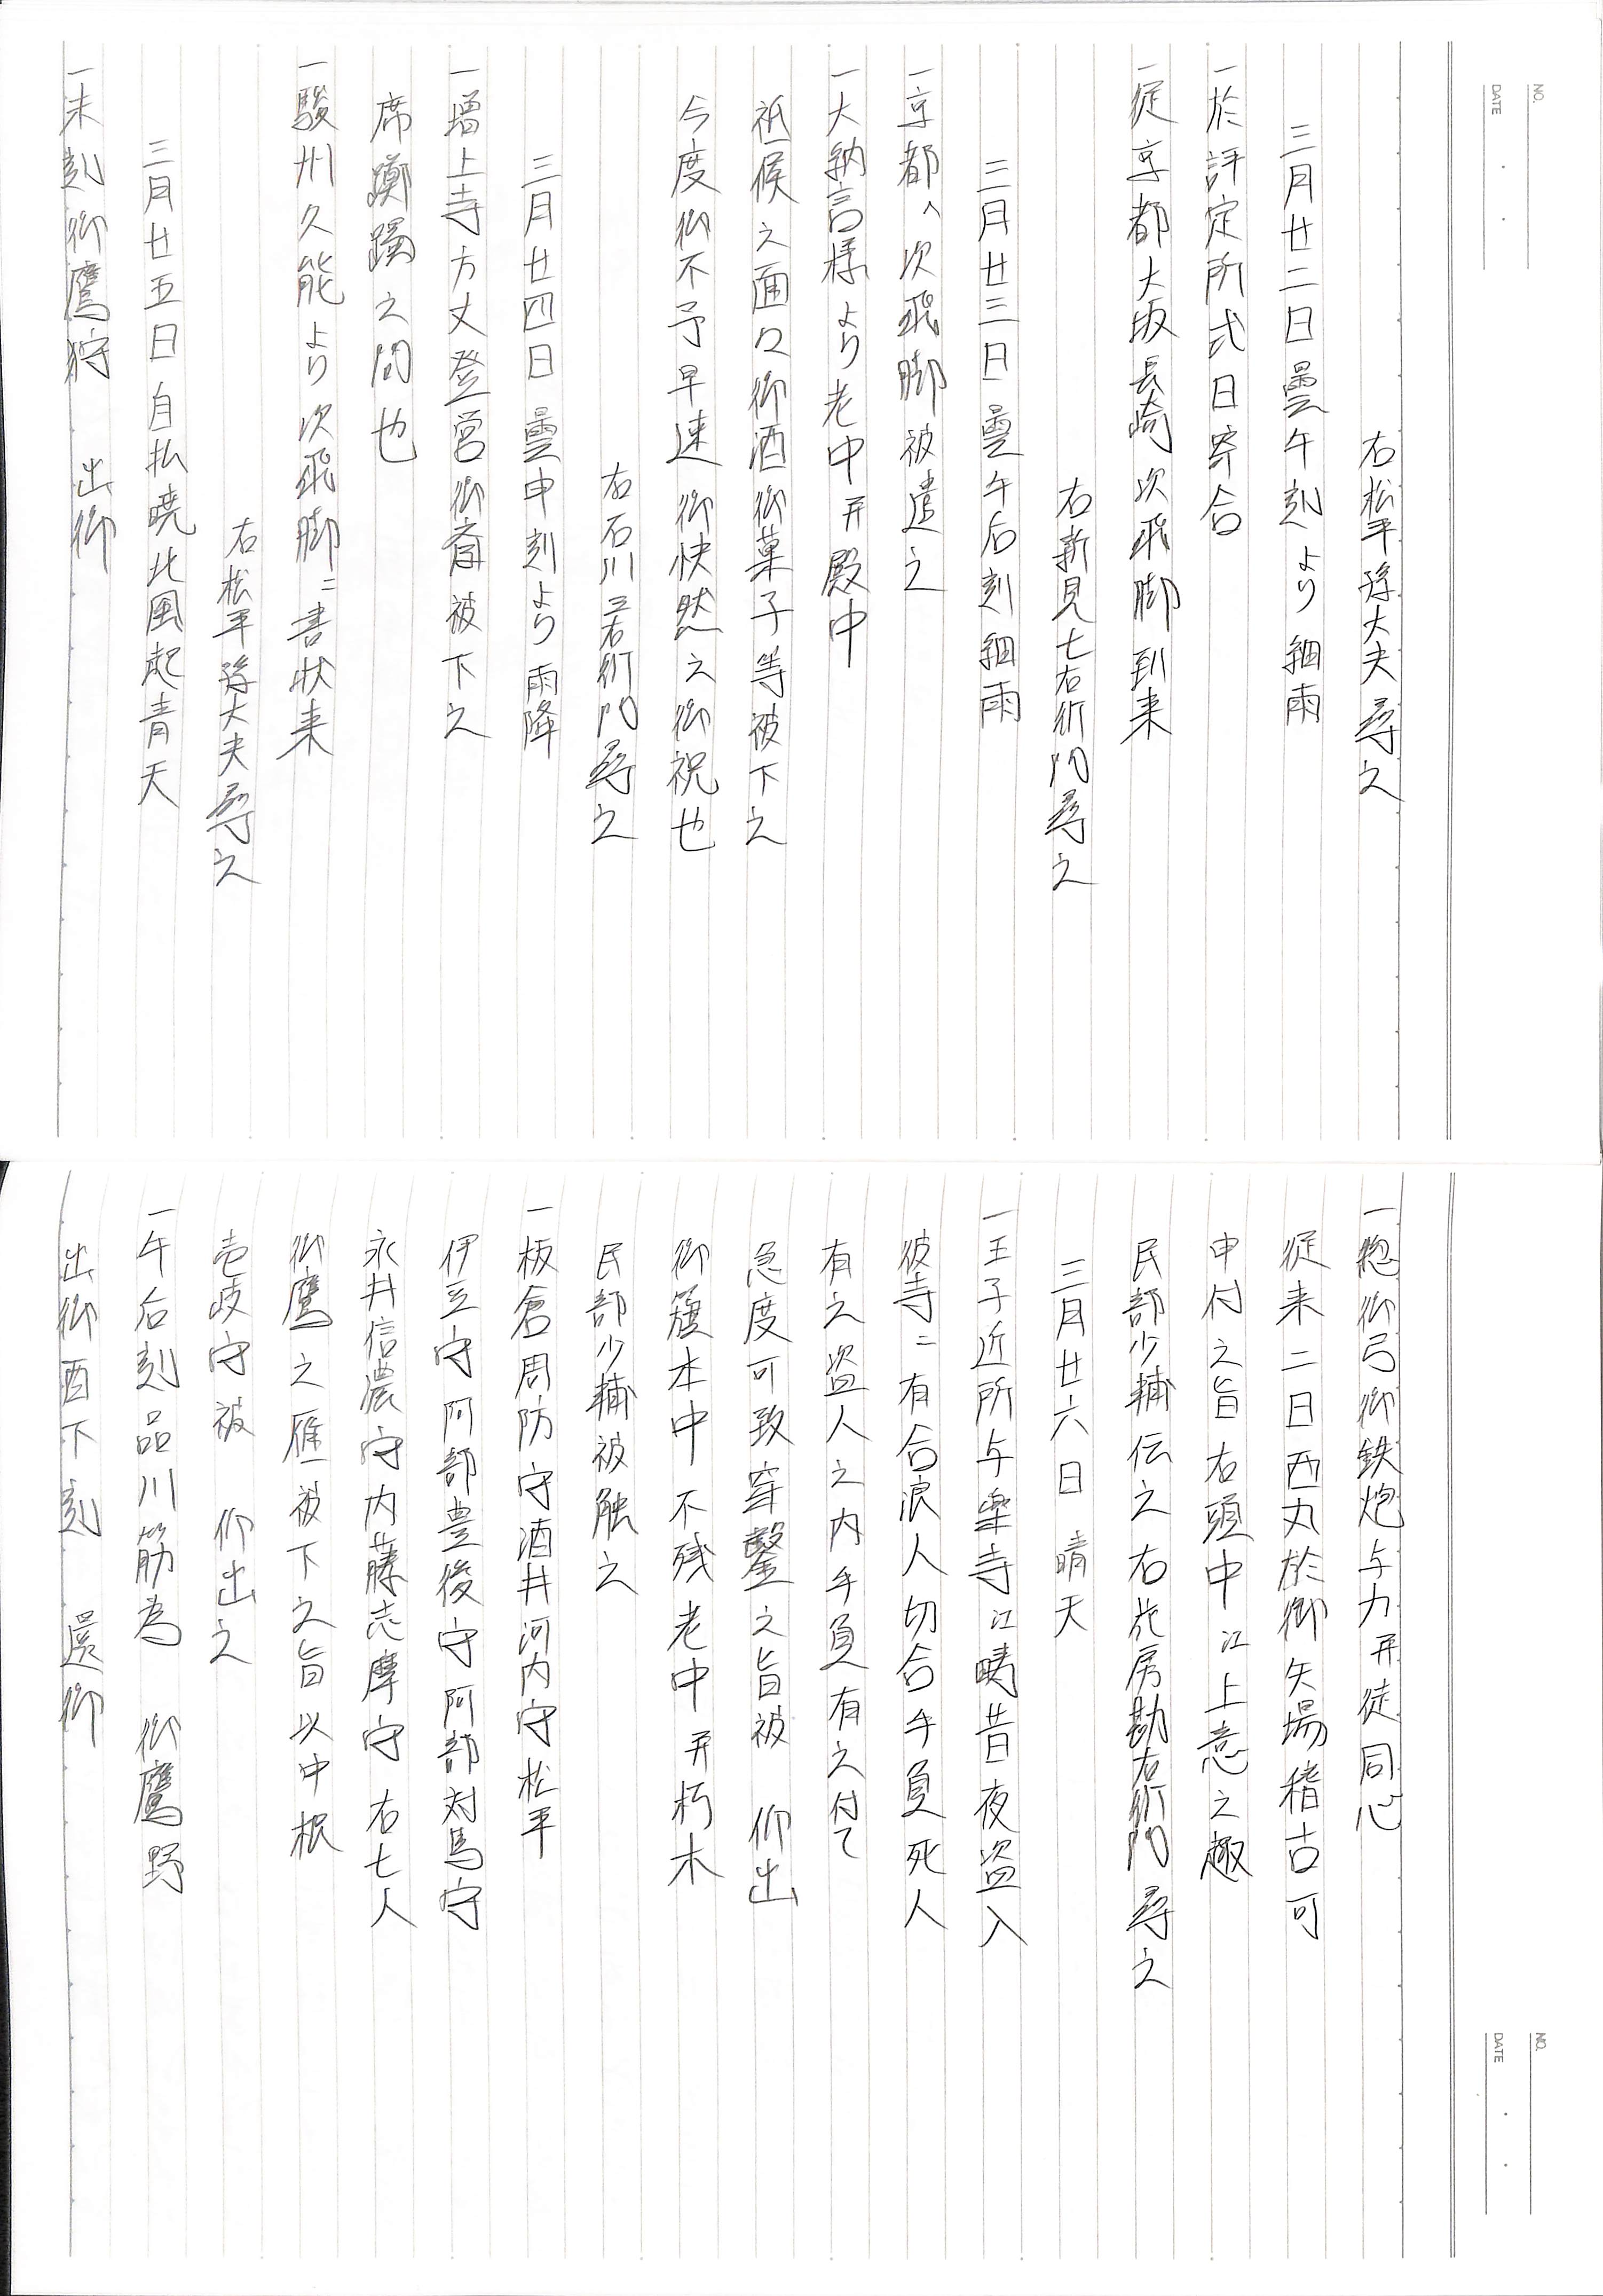 右松平孫大夫尋之
三月廿二日曇午刻より細雨
一於評定所式日寄合
一従京都大坂長崎次飛脚到来
右新見七右衛門尋之
三月廿三日曇午后刻細雨
一京都へ次飛脚被遣之
一大納言様より老中并殿中
祗候之面々御酒御菓子等被下之
今度御不予早速御快然之御祝也
右石川三右衛門尋之
三月廿四日曇申刻より雨降
一増上寺方丈登営御斎被下之
席躑躅之間也
一駿州久能より次飛脚ニ書状来
右松平孫大夫尋之
三月廿五日自払暁北風起青天
一未刻御鷹狩 出御
一惣御弓御鉄炮与力并徒同心
従来二日西丸於御矢場稽古可
申付之旨右頭中江上意之趣
民部少輔伝之右花房勘右衛門尋之
三月廿六日 晴天
一王子近所与楽寺江疇昔夜盗入
彼寺ニ有合浪人切合手負死人
有之盗人之内手負有之付て
急度可致穿鑿之旨被 仰出
御籏本中不残老中并朽木
民部少輔被触之
一板倉周防守酒井河内守松平
伊豆守阿部豊後守阿部対馬守
永井信濃守内藤志摩守右七人
御鷹之雁被下之旨以中根
壱岐守被 仰出之
一午后刻品川筋為 御鷹野
出御酉下刻 還御
NO.
DATE
NO.
DATE